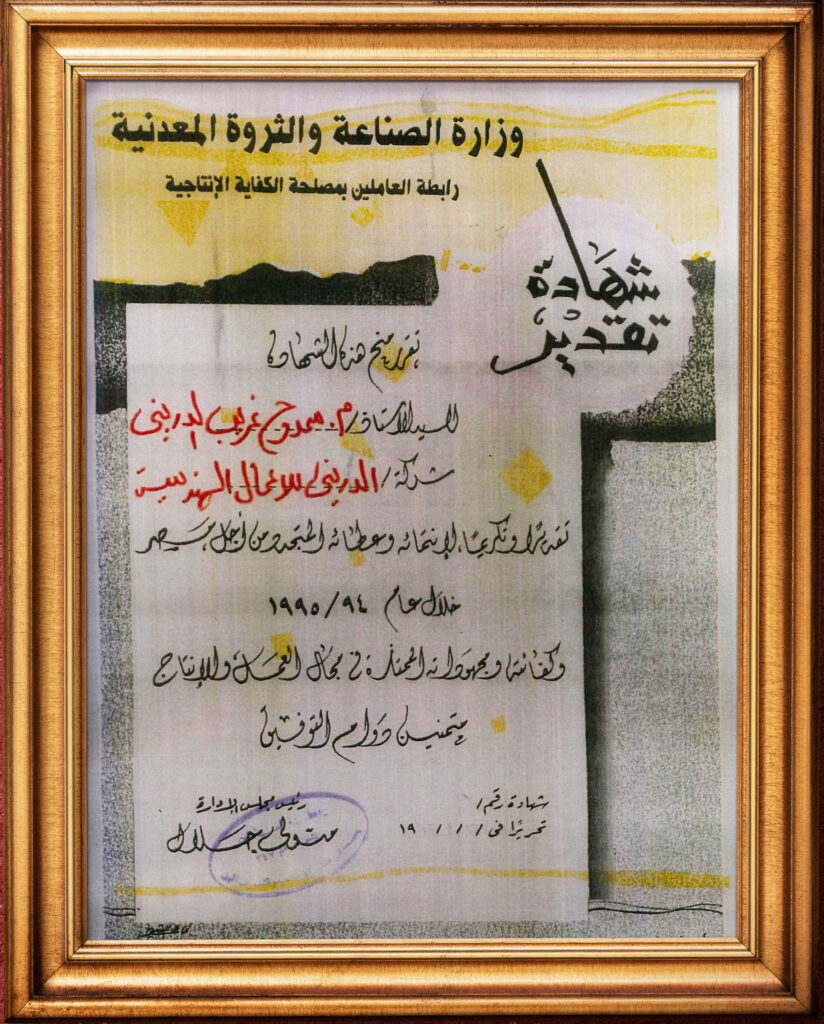 وزارة الصناعة والثروة المعدنية
رابطة العاملين بمصلحة الكفاية الإنتاجية
شهادة
تقدير
تقرر منح هذه الشهادة
للسيد الأستاذ/ م. ممدوح غريب الدرينى
شركة/ الدرينى للاعمال الهندسية
تقديرًا وتكريمًا، لإنتمائه وعطائه المتجدد من أجل مصر
خلال عام ٩٤/١٩٩٥
وكفائته ومجهوداته الممتازة فى مجال العمل والإنتاج
متمنين دوام التوفيق
شهادة رقم/
تحريرًا فى / / ١٩
رئيس مجلس الإدارة
متولى جلال